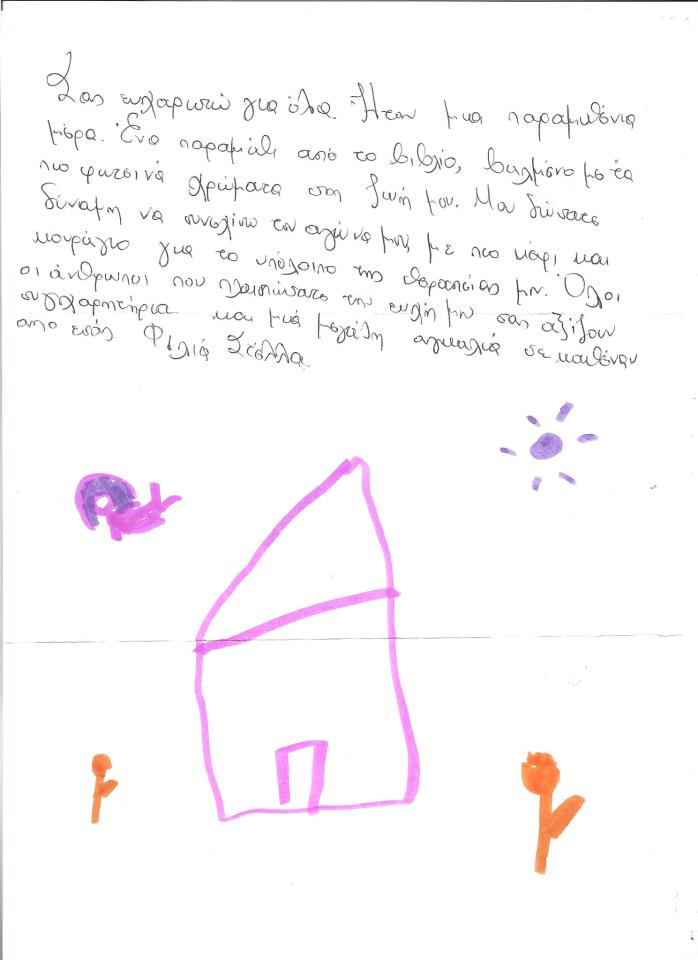 Σας ευχαριστώ για όλα. Ήταν μια παραμυθένια
μέρα. Ένα παραμύθι από το βιβλίο, βαλμένο με τα
πιο φωτεινά χρώματα στη ζωή μου. Μου δώσατε
δύναμη να συνεχίσω τον αγώνα μου με πιο κέφι και
κουράγιο για το υπόλοιπο της θεραπείας μου. Όλοι
οι άνθρωποι που πλαισιώσατε την ευχή μου σας αξίζουν
συγχαρητήρια και μιά μεγάλη αγκαλιά σε καθέναν
απο εσάς Φιλιά Στέλλα